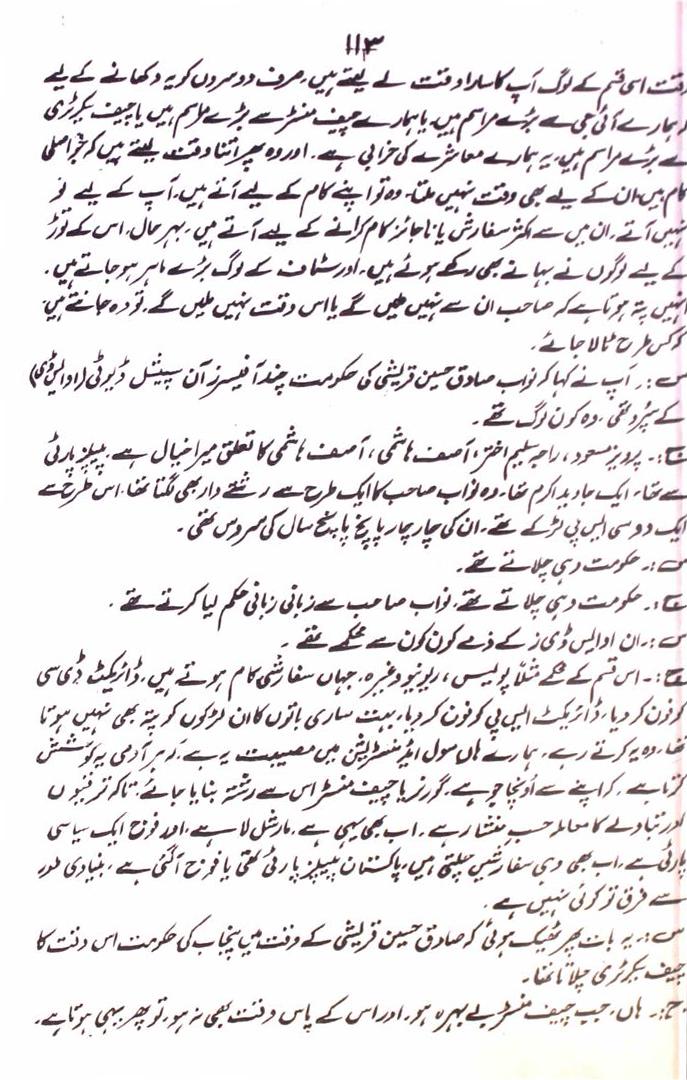 ۱۱۳
وقت اسی قسم کے لوگ آپ کا سارا وقت لے لیتے ہیں۔ صرف دوسروں کو یہ دکھانے کے لیے
کہ ہمارے آئی جی سے بڑے مراسم ہیں یا ہمارے چیف منسٹر سے بڑے مراسم ہیں یا چیف سیکرٹری
سے بڑے مراسم ہیں۔ یہ ہمارے معاشرے کی خرابی ہے۔ اور وہ پھر اتنا وقت لیتے ہیں کہ جو اصلی
کام ہیں ان کے لیے بھی وقت نہیں ملتا۔ وہ تو اپنے کام کے لیے آتے ہیں۔ آپ کے لیے تو
نہیں آتے۔ ان میں سے اکثر سفارش یا ناجائز کام کرانے کے لیے آتے ہیں۔ بہرحال۔ اس کے توڑ
کے لیے لوگوں نے بہانے بھی رکھے ہوئے ہیں۔ اور سٹاف کے لوگ بڑے ماہر ہو جاتے ہیں۔
انہیں پتہ ہوتا ہے کہ صاحب ان سے نہیں ملیں گے یا اس وقت نہیں ملیں گے۔ تو وہ جانتے ہیں
کہ کس طرح ٹالا جائے۔
س:۔ آپ نے کہا کہ نواب صادق حسین قریشی کی حکومت چند آفیسرز آن سپیشل ڈیوٹی (او ایس ڈی)
کے سپرد تھی۔ وہ کون لوگ تھے۔
ج:۔ پرویز مسعود، راجہ سلیم اختر، آصف ہاشمی، آصف ہاشمی کا تعلق میرا خیال ہے۔ پیپلز پارٹی
سے تھا۔ ایک جاوید اکرم تھا۔ وہ نواب صاحب کا ایک طرح سے رشتے دار بھی لگتا تھا۔ اس طرح سے
ایک دو سی ایس پی لڑکے تھے۔ ان کی چار چار پانچ پانچ سال کی سروس تھی۔
س:۔ حکومت وہی چلاتے تھے۔
ج:۔ حکومت وہی چلاتے تھے۔ نواب صاحب سے زبانی زبانی حکم لیا کرتے تھے۔
س:۔ ان او ایس ڈی ز کے ذمے کون کون سے محکمے تھے۔
ج:۔ اس قسم کے محکمے مثلاً پولیس، ریونیو وغیرہ۔ جہاں سفارشی کام ہوتے ہیں۔ ڈائریکٹ ڈی سی
کو فون کر دیا۔ ڈائریکٹ ایس پی کو فون کر دیا۔ بہت ساری باتوں کا ان لڑکوں کو پتہ بھی نہیں ہوتا
تھا۔ وہ یہ کرتے رہے۔ ہمارے ہاں سول ایڈمنسٹریشن میں مصیبت یہ ہے۔ کہ ہر آدمی یہ کوشش
کرتا ہے۔ کہ اپنے سے اونچا جو ہے۔ گورنر یا چیف منسٹر اس سے رشتہ بنایا جائے۔ تاکہ ترقیوں
اور تبادلے کا معاملہ حسب منشا رہے۔ اب بھی یہی ہے۔ مارشل لا ہے۔ اور فوج ایک سیاسی
پارٹی ہے۔ اب بھی وہی سفارشیں چلتی ہیں۔ پاکستان پیپلز پارٹی تھی یا فوج آگئی ہے۔ بنیادی طور
سے فرق تو کوئی نہیں ہے۔
س:۔ یہ بات پھر ٹھیک ہوئی کہ صادق حسین قریشی کے وقت میں پنجاب کی حکومت اس وقت کا
چیف سیکرٹری چلاتا تھا۔
ج:۔ ہاں۔ جب چیف منسٹر بے بہرہ ہو۔ اور اس کے پاس وقت بھی نہ ہو۔ تو پھر یہی ہوتا ہے۔